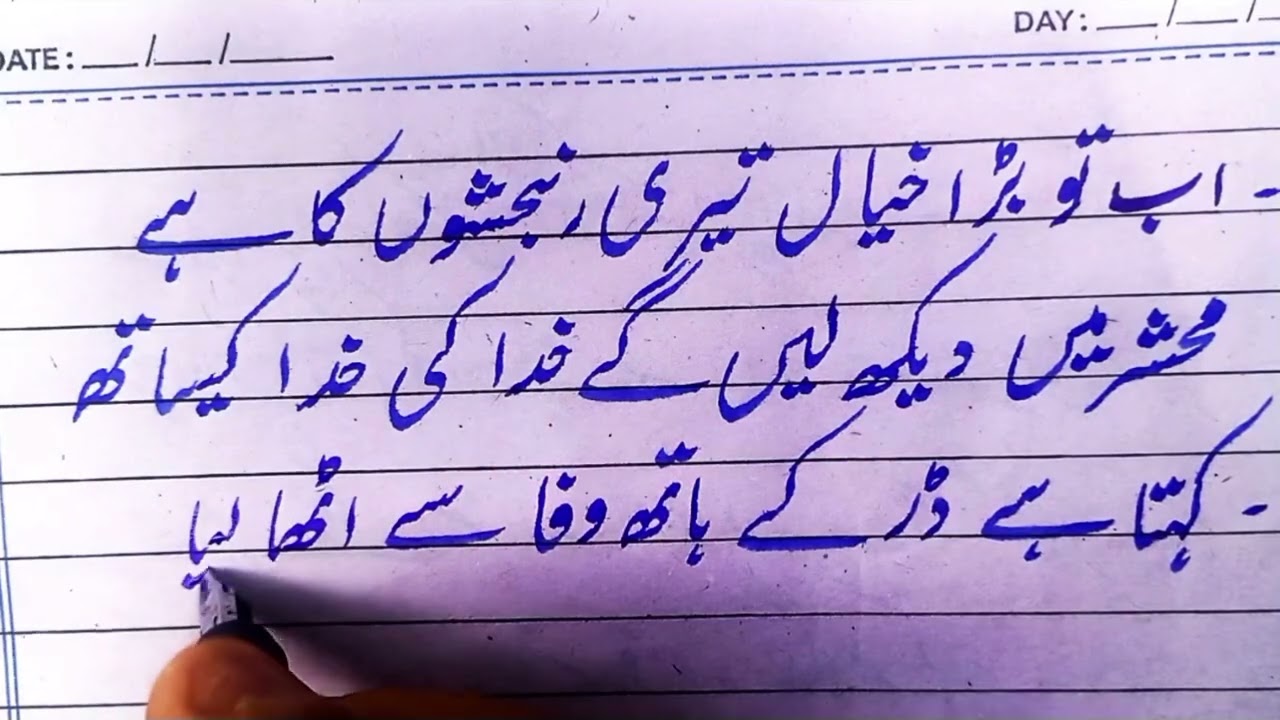 DATE: __/__/____ DAY: __/__/
- اب تو بڑا خیال تیری رنجشوں کا ہے
محشر میں دیکھ لیں گے خدا کی خدا کیساتھ
- کہتا ہے ڈر کے ہاتھ وفا سے اٹھا لیا